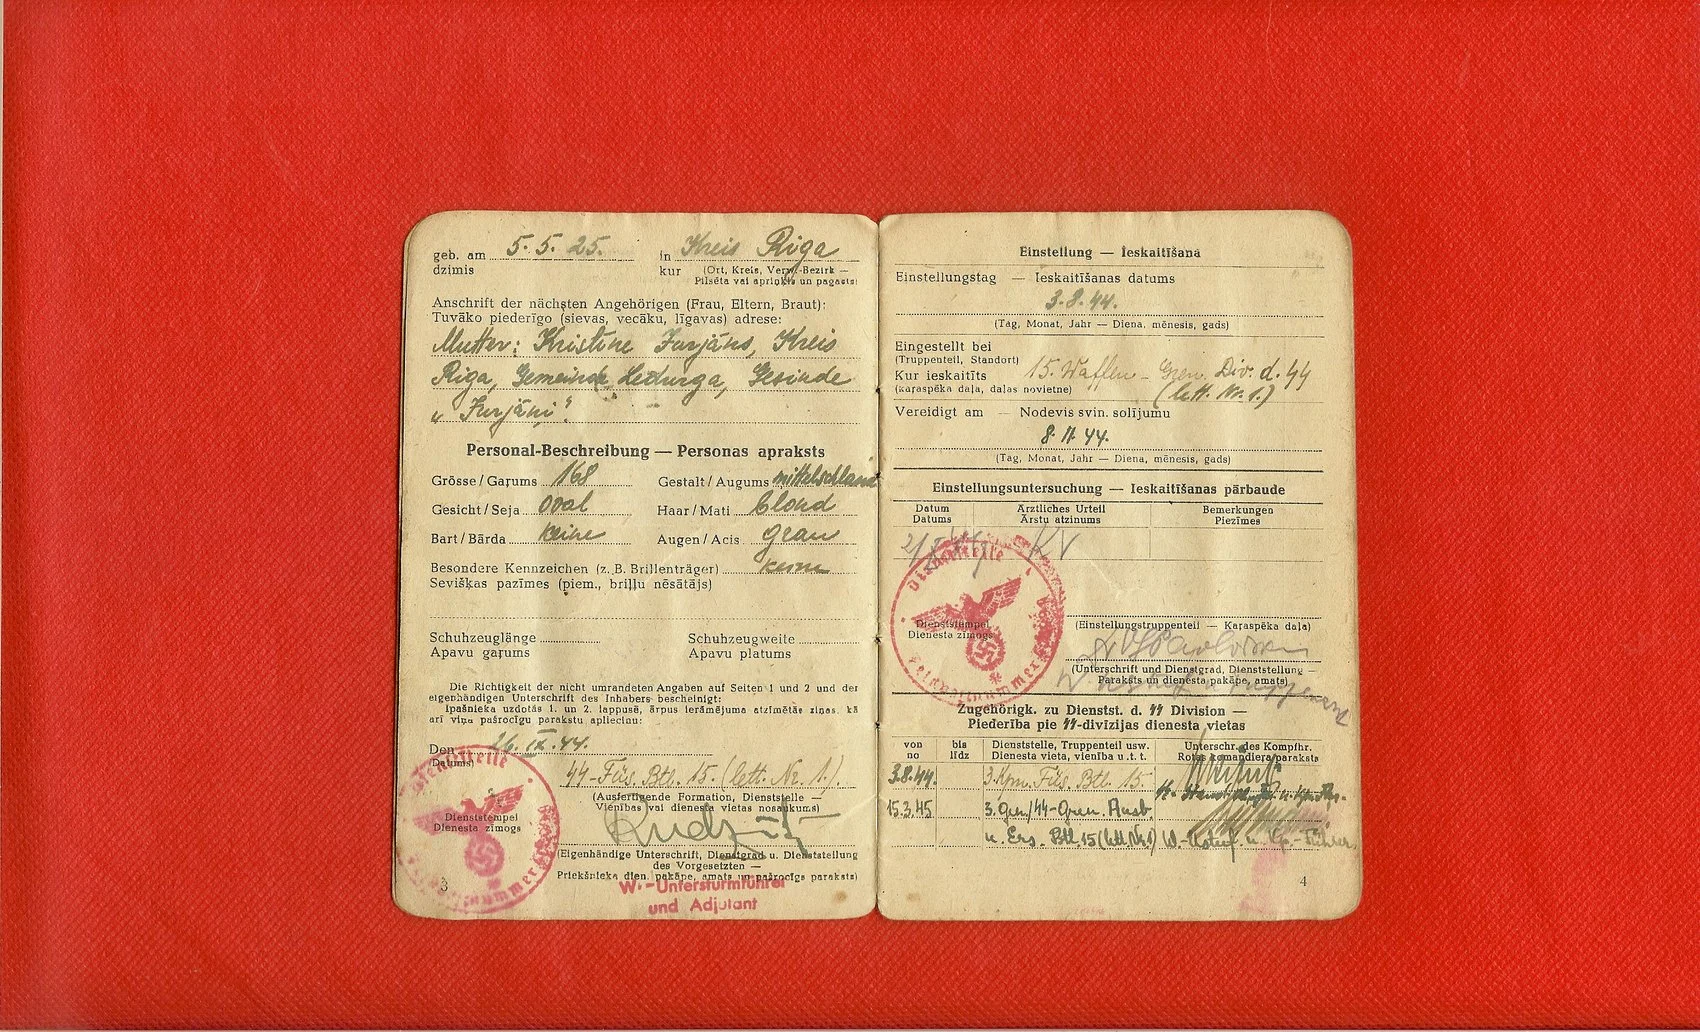 geb. am 5. 5. 25. in Kreis Riga
dzimis kur (Ort, Kreis, Verw.-Bezirk —
Pilsēta vai apriņķis un pagasts)
Anschrift der nächsten Angehörigen (Frau, Eltern, Braut):
Tuvāko piederīgo (sievas, vecāku, līgavas) adrese:
Mutter: Kristine Jurjāns, Kreis
Riga, Gemeinde Ledurga, Gesinde
„Jurjāni".
Personal-Beschreibung — Personas apraksts
Grösse/Gaŗums 168 Gestalt/Augums mittelschlank
Gesicht/Seja oval Haar/Mati blond
Bart/Bārda keine Augen/Acis grau
Besondere Kennzeichen (z. B. Brillenträger) keine
Sevišķas pazīmes (piem., briļļu nēsātājs)
Schuhzeuglänge Schuhzeugweite
Apavu gaŗums Apavu platums
Die Richtigkeit der nicht umrandeten Angaben auf Seiten 1 und 2 und der
eigenhändigen Unterschrift des Inhabers bescheinigt:
Īpašnieka uzdotās 1. un 2. lappusē, ārpus ierāmējuma atzīmētās ziņas, kā
arī viņa pašrocīgu parakstu apliecinu:
Den 26. IX. 44.
Datums)
Dienststelle
44-Füs. Btl. 15. (lett. Nr. 1.)
(Ausfertigende Formation, Dienststelle —
Vienības vai dienesta vietas nosaukums)
Dienststempel
Dienesta zīmogs
(Eigenhändige Unterschrift, Dienstgrad u. Dienststellung
des Vorgesetzten —
Priekšnieka dien. pakāpe, amats un pašrocīgs paraksts)
W.-Untersturmführer
und Adjutant
3
Einstellung — Ieskaitīšana
Einstellungstag — Ieskaitīšanas datums
3. 8. 44.
(Tag, Monat, Jahr — Diena, mēnesis, gads)
Eingestellt bei
(Truppenteil, Standort)
Kur ieskaitīts 15. Waffen-Gren. Div. d. 44
(karaspēka daļa, daļas novietne) (lett. Nr. 1.)
Vereidigt am — Nodevis svin. solījumu
8. 11. 44.
(Tag, Monat, Jahr — Diena, mēnesis, gads)
Einstellungsuntersuchung — Ieskaitīšanas pārbaude
Datum Ärztliches Urteil Bemerkungen
Datums Ārstu atzinums Piezīmes
KV
Dienststelle
Feldpostnummer
Dienststempel
Dienesta zīmogs
(Einstellungstruppenteil — Kaŗaspēka daļa)
(Unterschrift und Dienstgrad, Dienststellung —
Paraksts un dienesta pakāpe, amats)
Zugehörigk. zu Dienstst. d. ᛋᛋ Division —
Piederība pie ᛋᛋ-divīzijas dienesta vietas
von bis Dienststelle, Truppenteil usw. Unterschr. des Kompfhr.
no līdz Dienesta vieta, vienība u. t. t. Rotas komandiera paraksts
3.8.44. 3. Kpn. Füs. Btl. 15.
15.3.45 3. Gen/44-Gren. Ausb.
u. Ers. Btl. 15 (lett. Nr. 1)
4